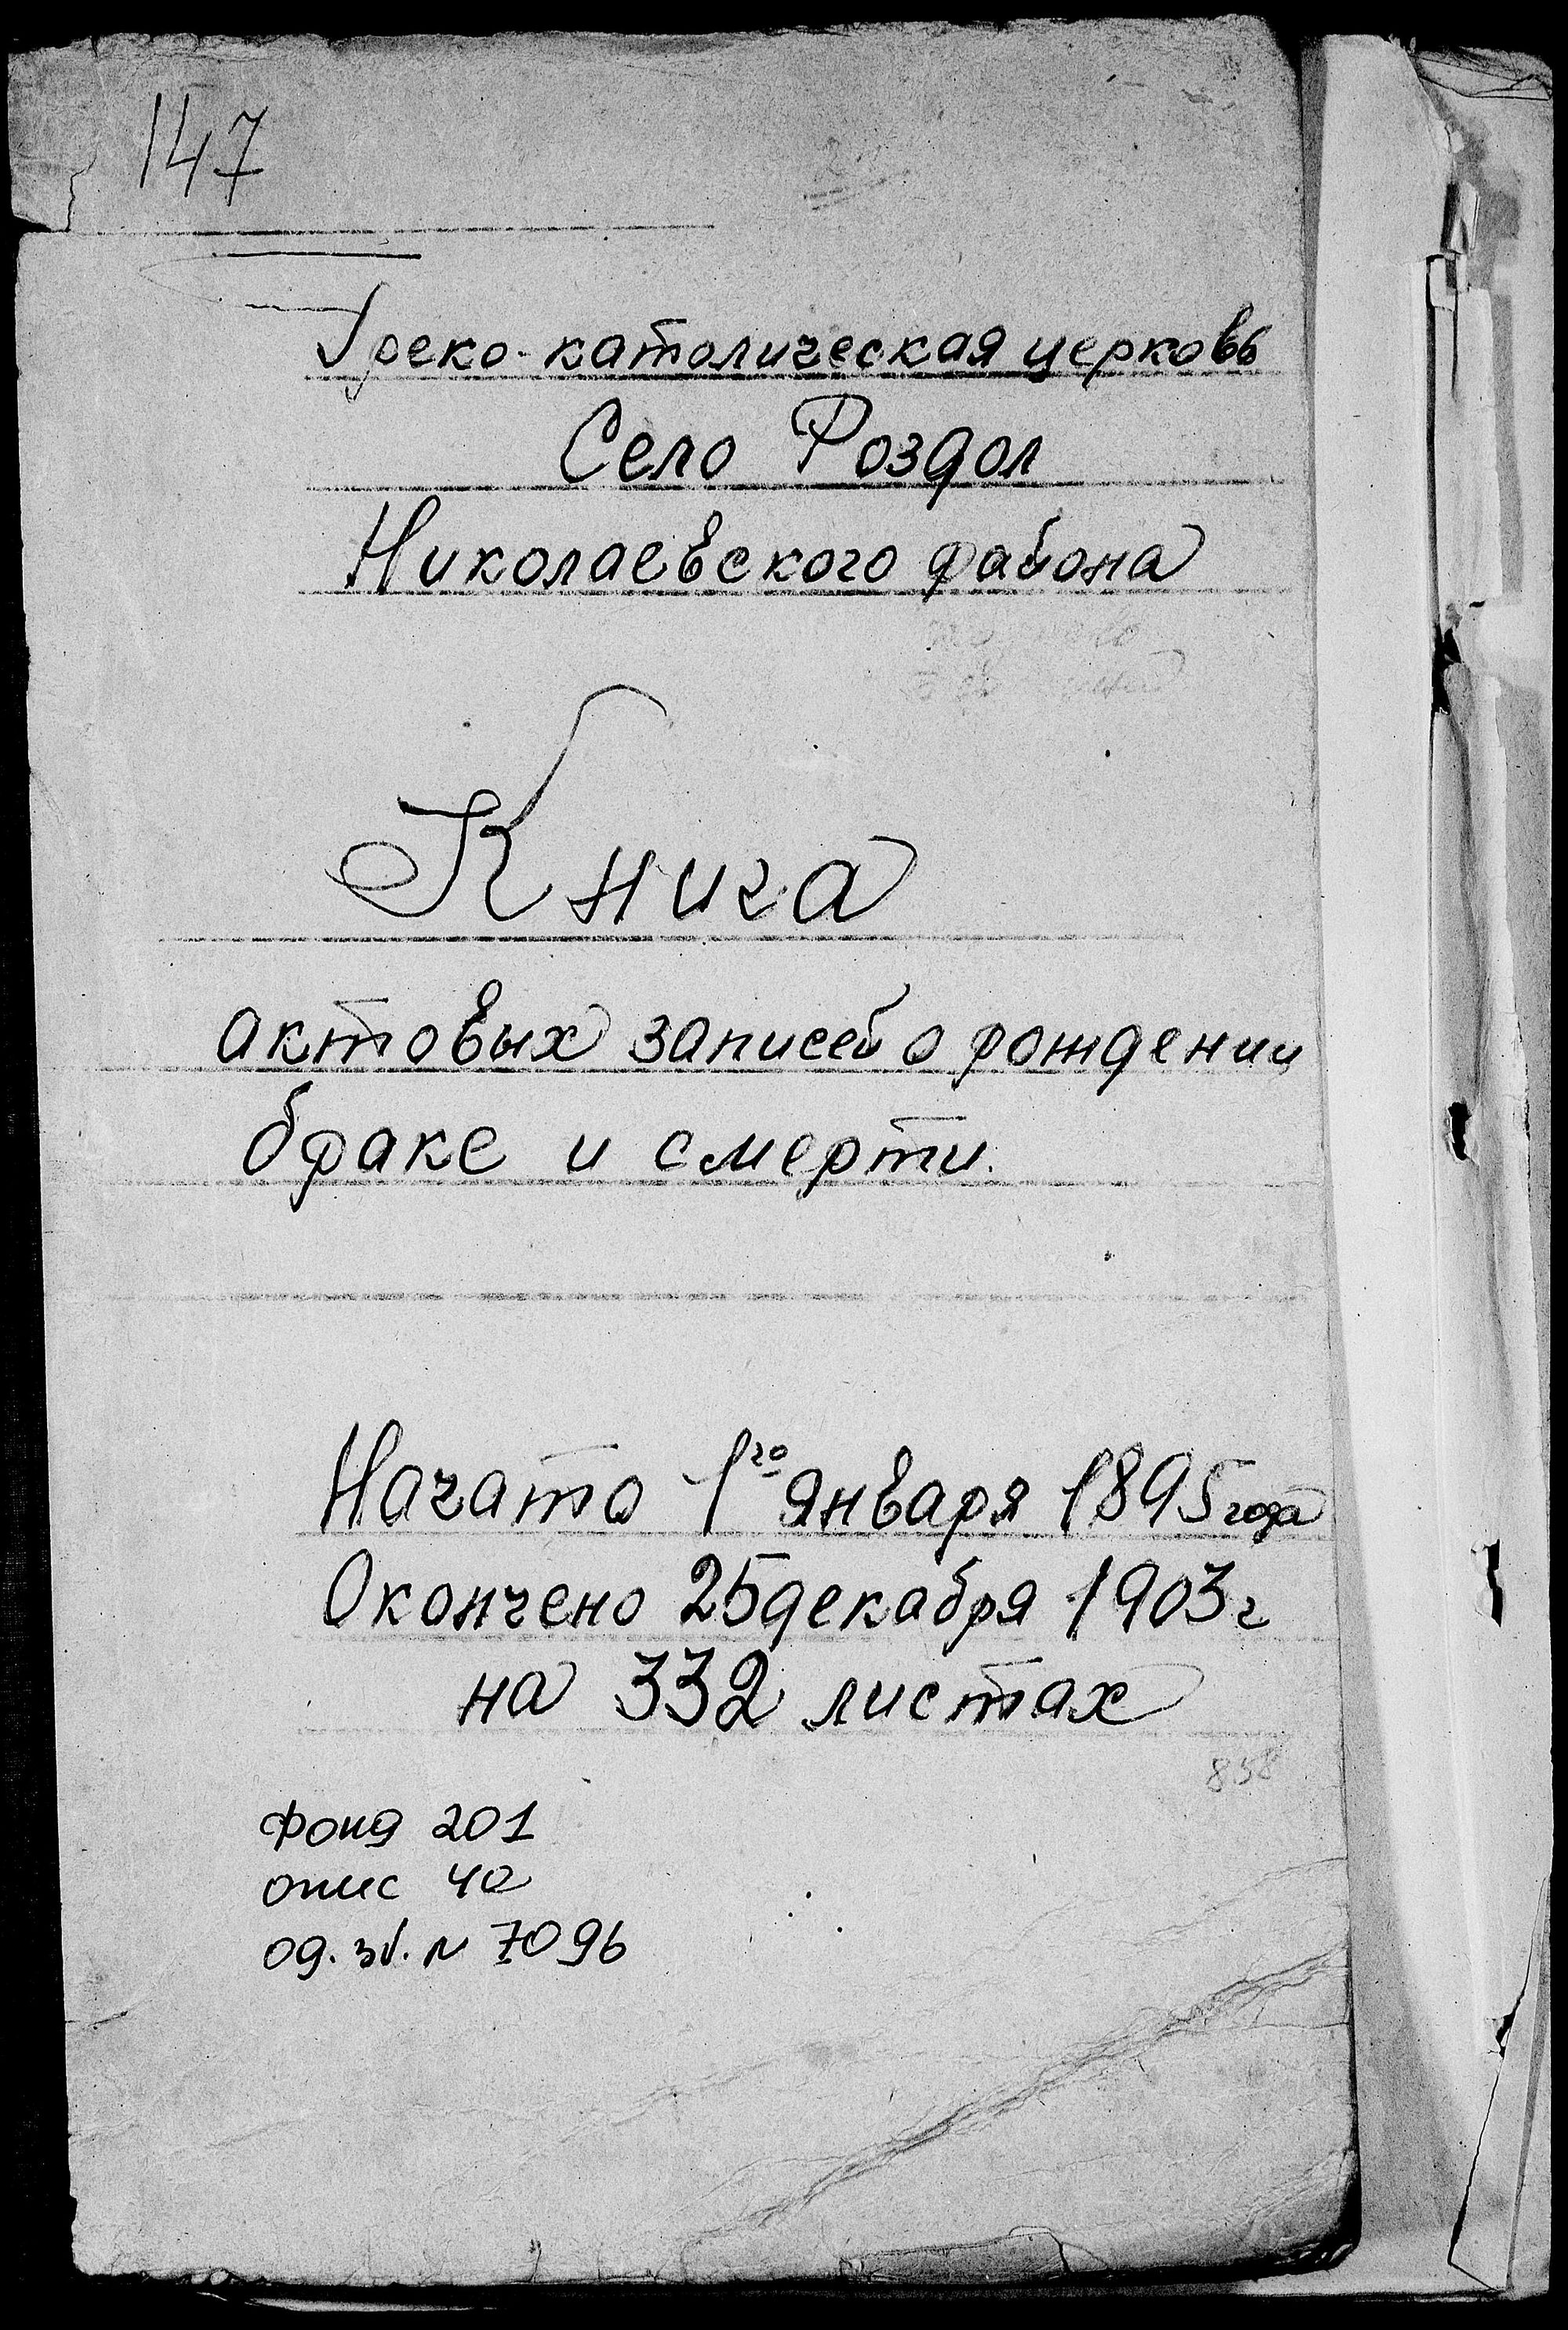 147
Греко-католическая церковь
Село Роздол
Николаевского района
Книга
актовых записей о рождении,
браке и смерти.
Начато 1го января 1895 года
Окончено 25 декабря 1903 г
на 332 листах
858
фонд 201
опис 4а
од. зб. N 7096